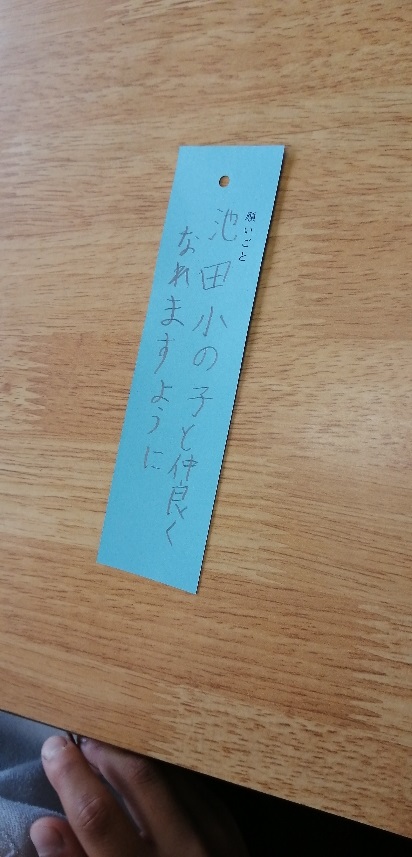 願いごと
池田小の子と仲良く
なれますように